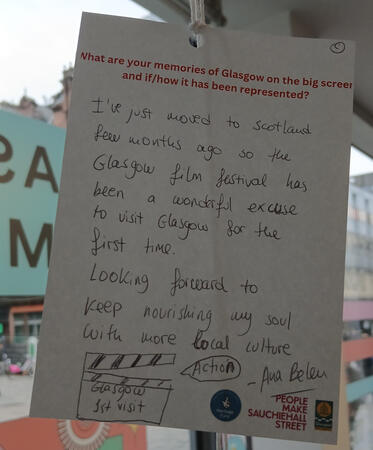 What are your memories of Glasgow on the big screen
and if/how it has been represented?
I've just moved to Scotland
few months ago so the
Glasgow film festival has
been a wonderful excuse
to visit Glasgow for the
first time.
Looking forward to
keep nourishing my soul
with more local culture
Action
- Ana Belen
Glasgow
1st visit
PEOPLE
MAKE
SAUCHIEHALL
STREET
SA
M